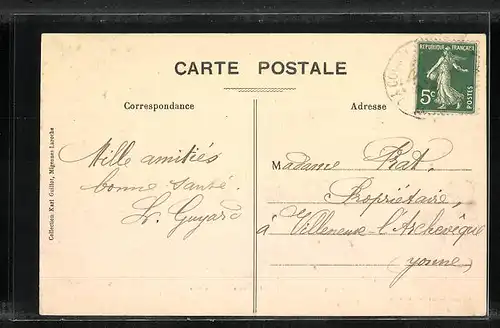 CARTE POSTALE
Correspondance
Adresse
REPUBLIQUE FRANÇAISE
5c
POSTES
Mille amitiés
bonne santé.
L. Guyard
Madame Rat,
Propriétaire,
à Villeneuve-l'Archevêque
(Yonne)
Collection Karl Guillot, Migennes-Laroche